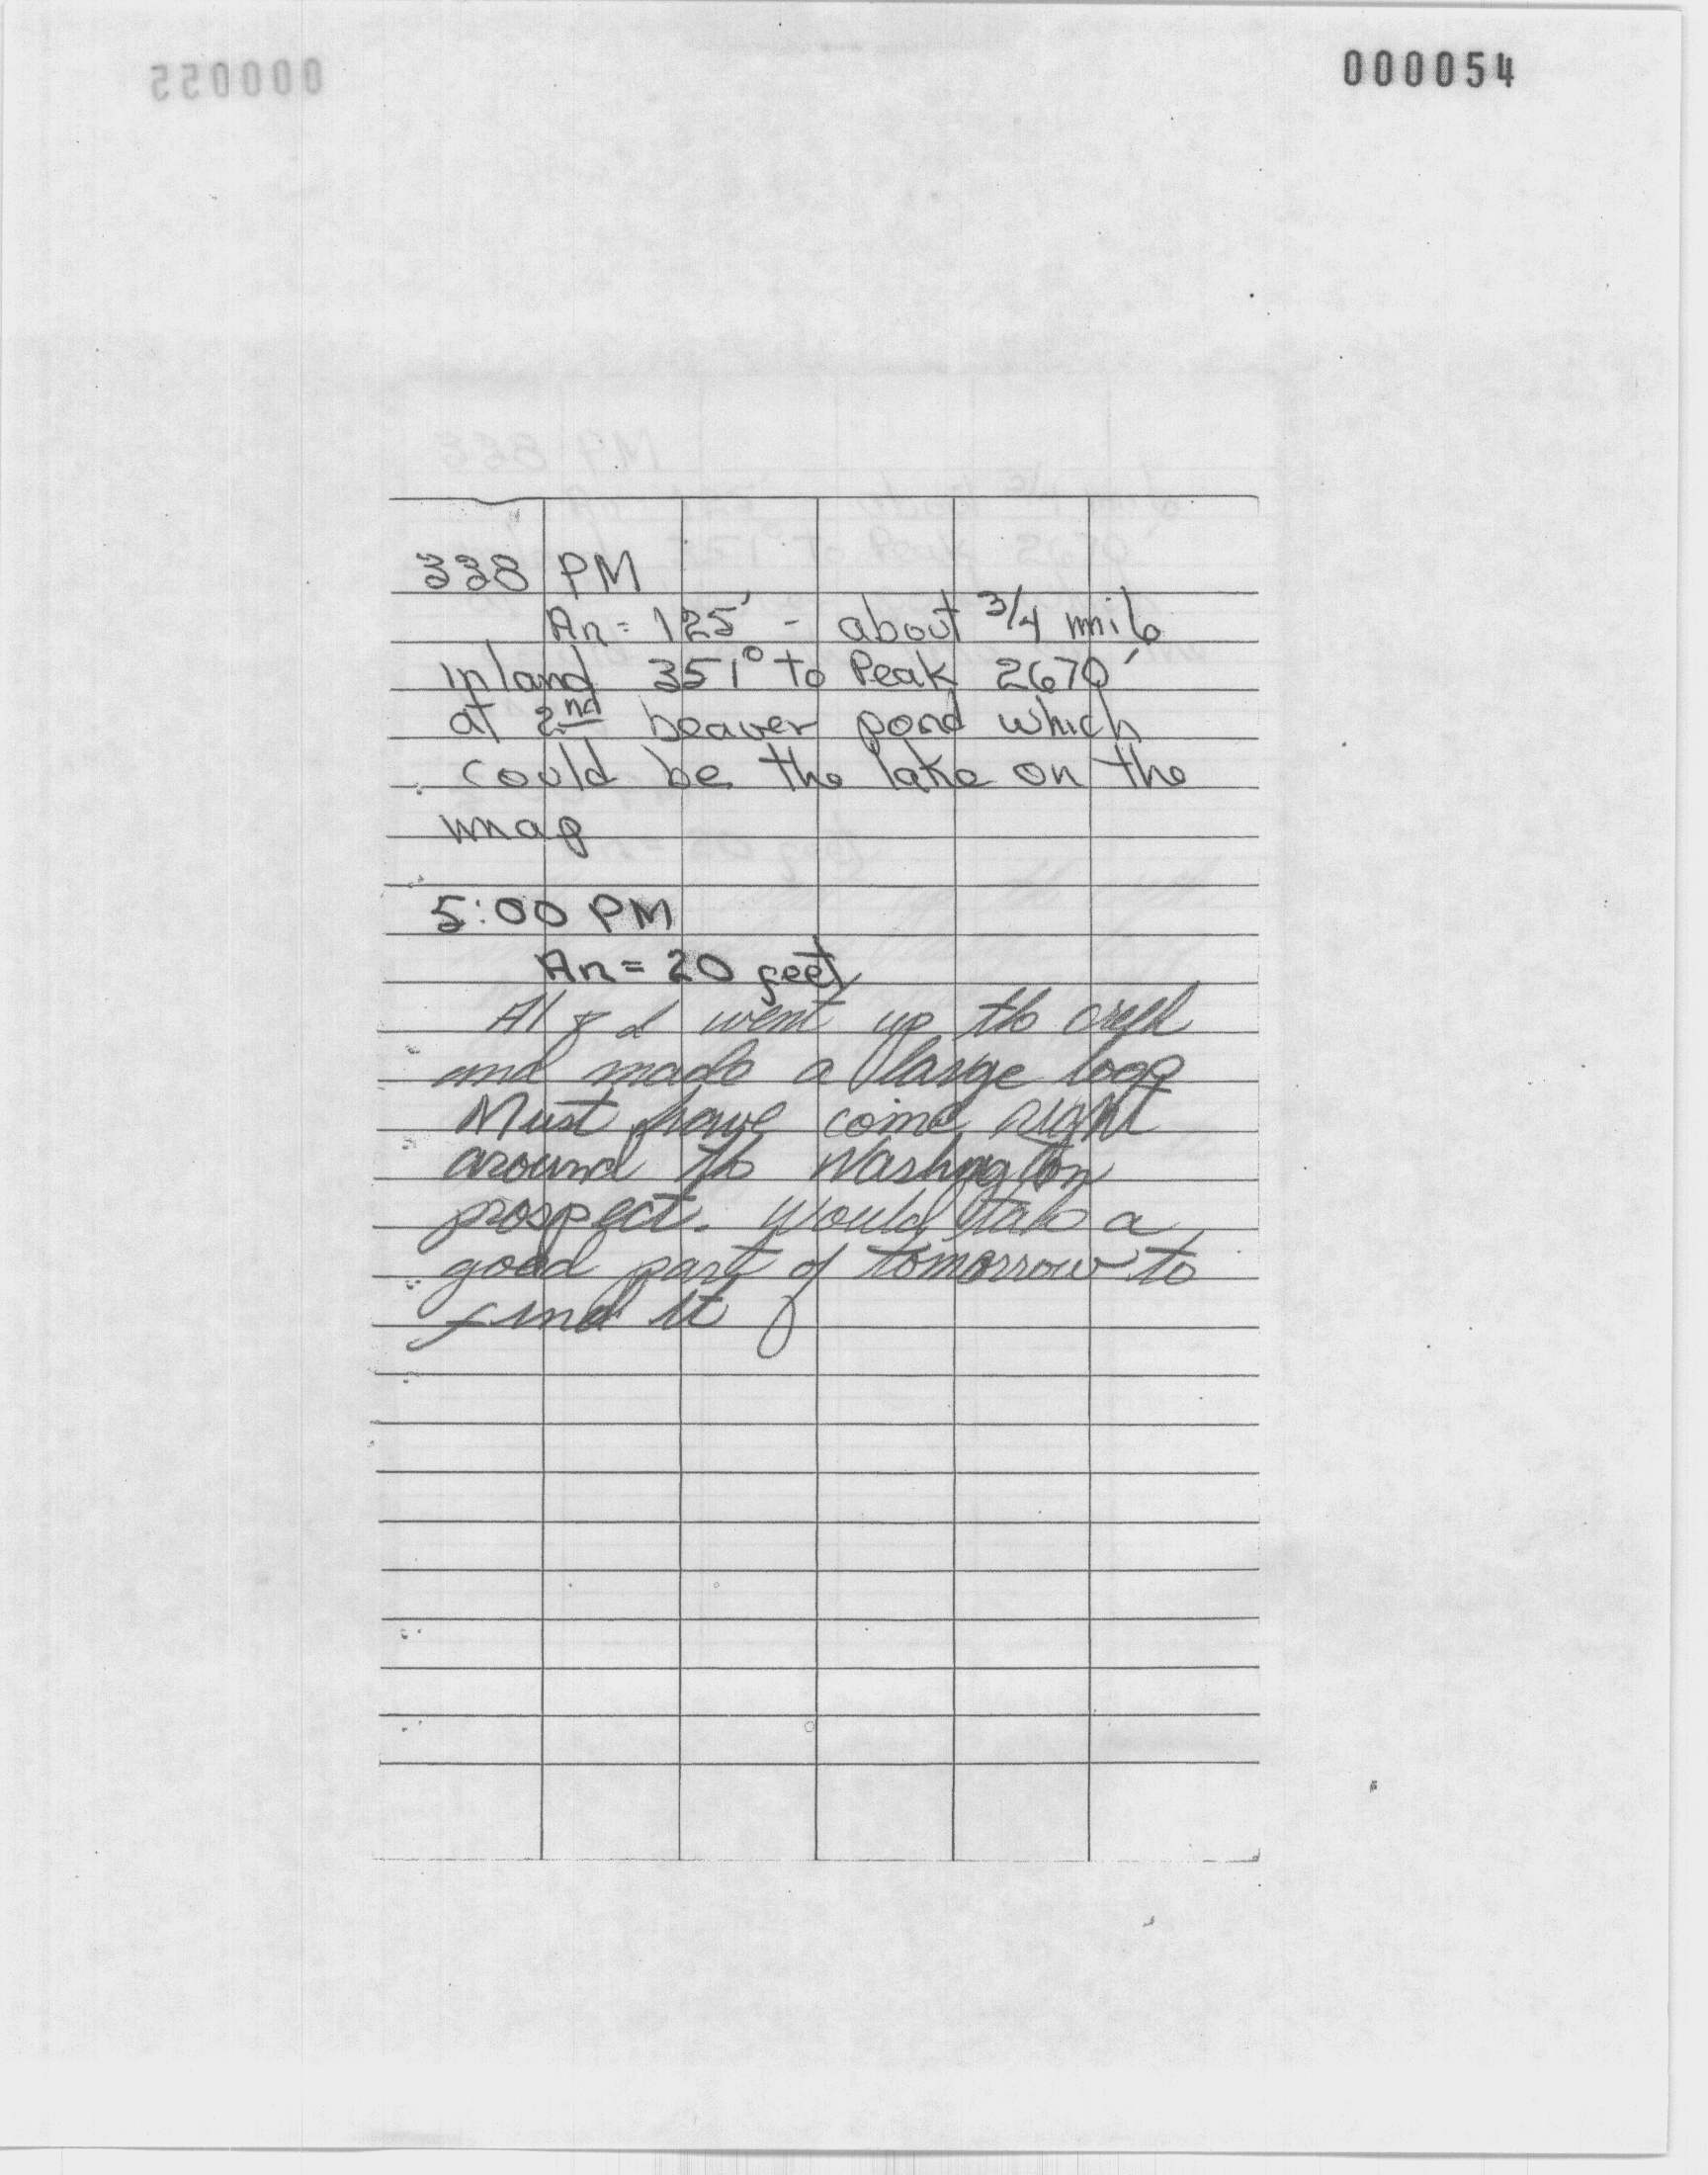 000054
338 PM
An = 125' - about 3/4 mile
inland 351° to Peak 2670'
at 2nd beaver pond which
could be the lake on the
map
5:00 PM
An = 20 feet
Al & I went up the creek
and made a large loop
Must have come right
around the Washington
prospect. Would take a
good part of tomorrow to
find it